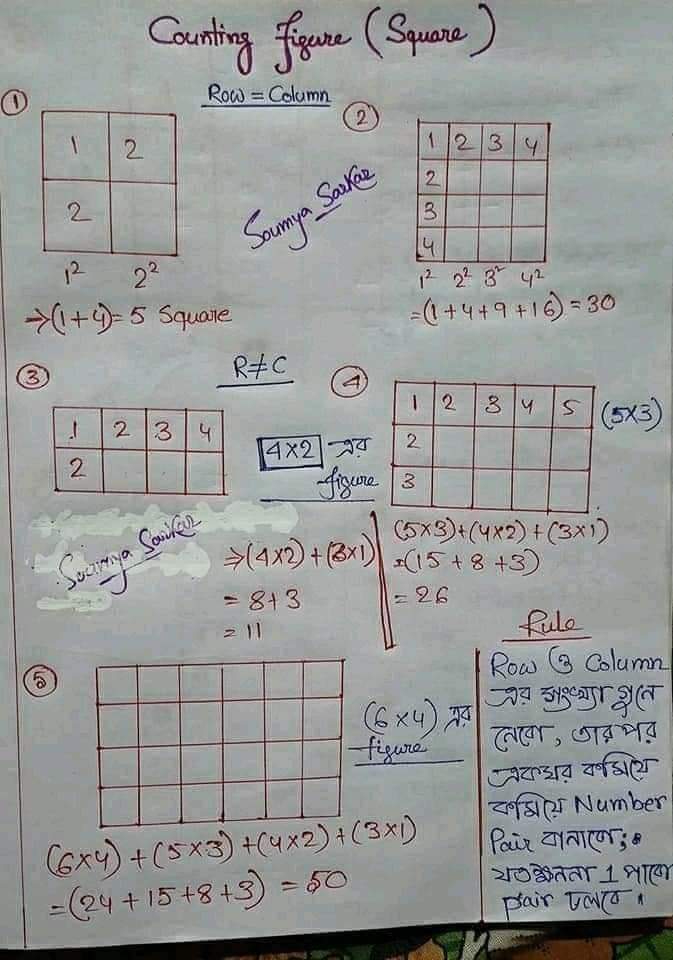 Counting figure (Square)
Row = Column
①
1 2
2
1² 2²
→(1+4)= 5 Square
②
1 2 3 4
2
3
4
1² 2² 3² 4²
=(1+4+9+16) = 30
Soumya Sarkar
R≠C
③
1 2 3 4
2
4×2 এর
figure
Soumya Sarkar
⇒(4×2) + (3×1)
= 8+3
= 11
④
1 2 3 4 5
2
3
(5×3)
(5×3)+(4×2)+(3×1)
=(15+8+3)
= 26
⑤
(6×4) এর
figure
(6×4) + (5×3) + (4×2) + (3×1)
=(24+15+8+3) = 50
Rule
Row ও Column
এর সংখ্যা গুনে
নেবো, তারপর
একঘর কমিয়ে
কমিয়ে Number
Pair বানাবো;
যতক্ষননা 1 পাবো
pair চলবে।